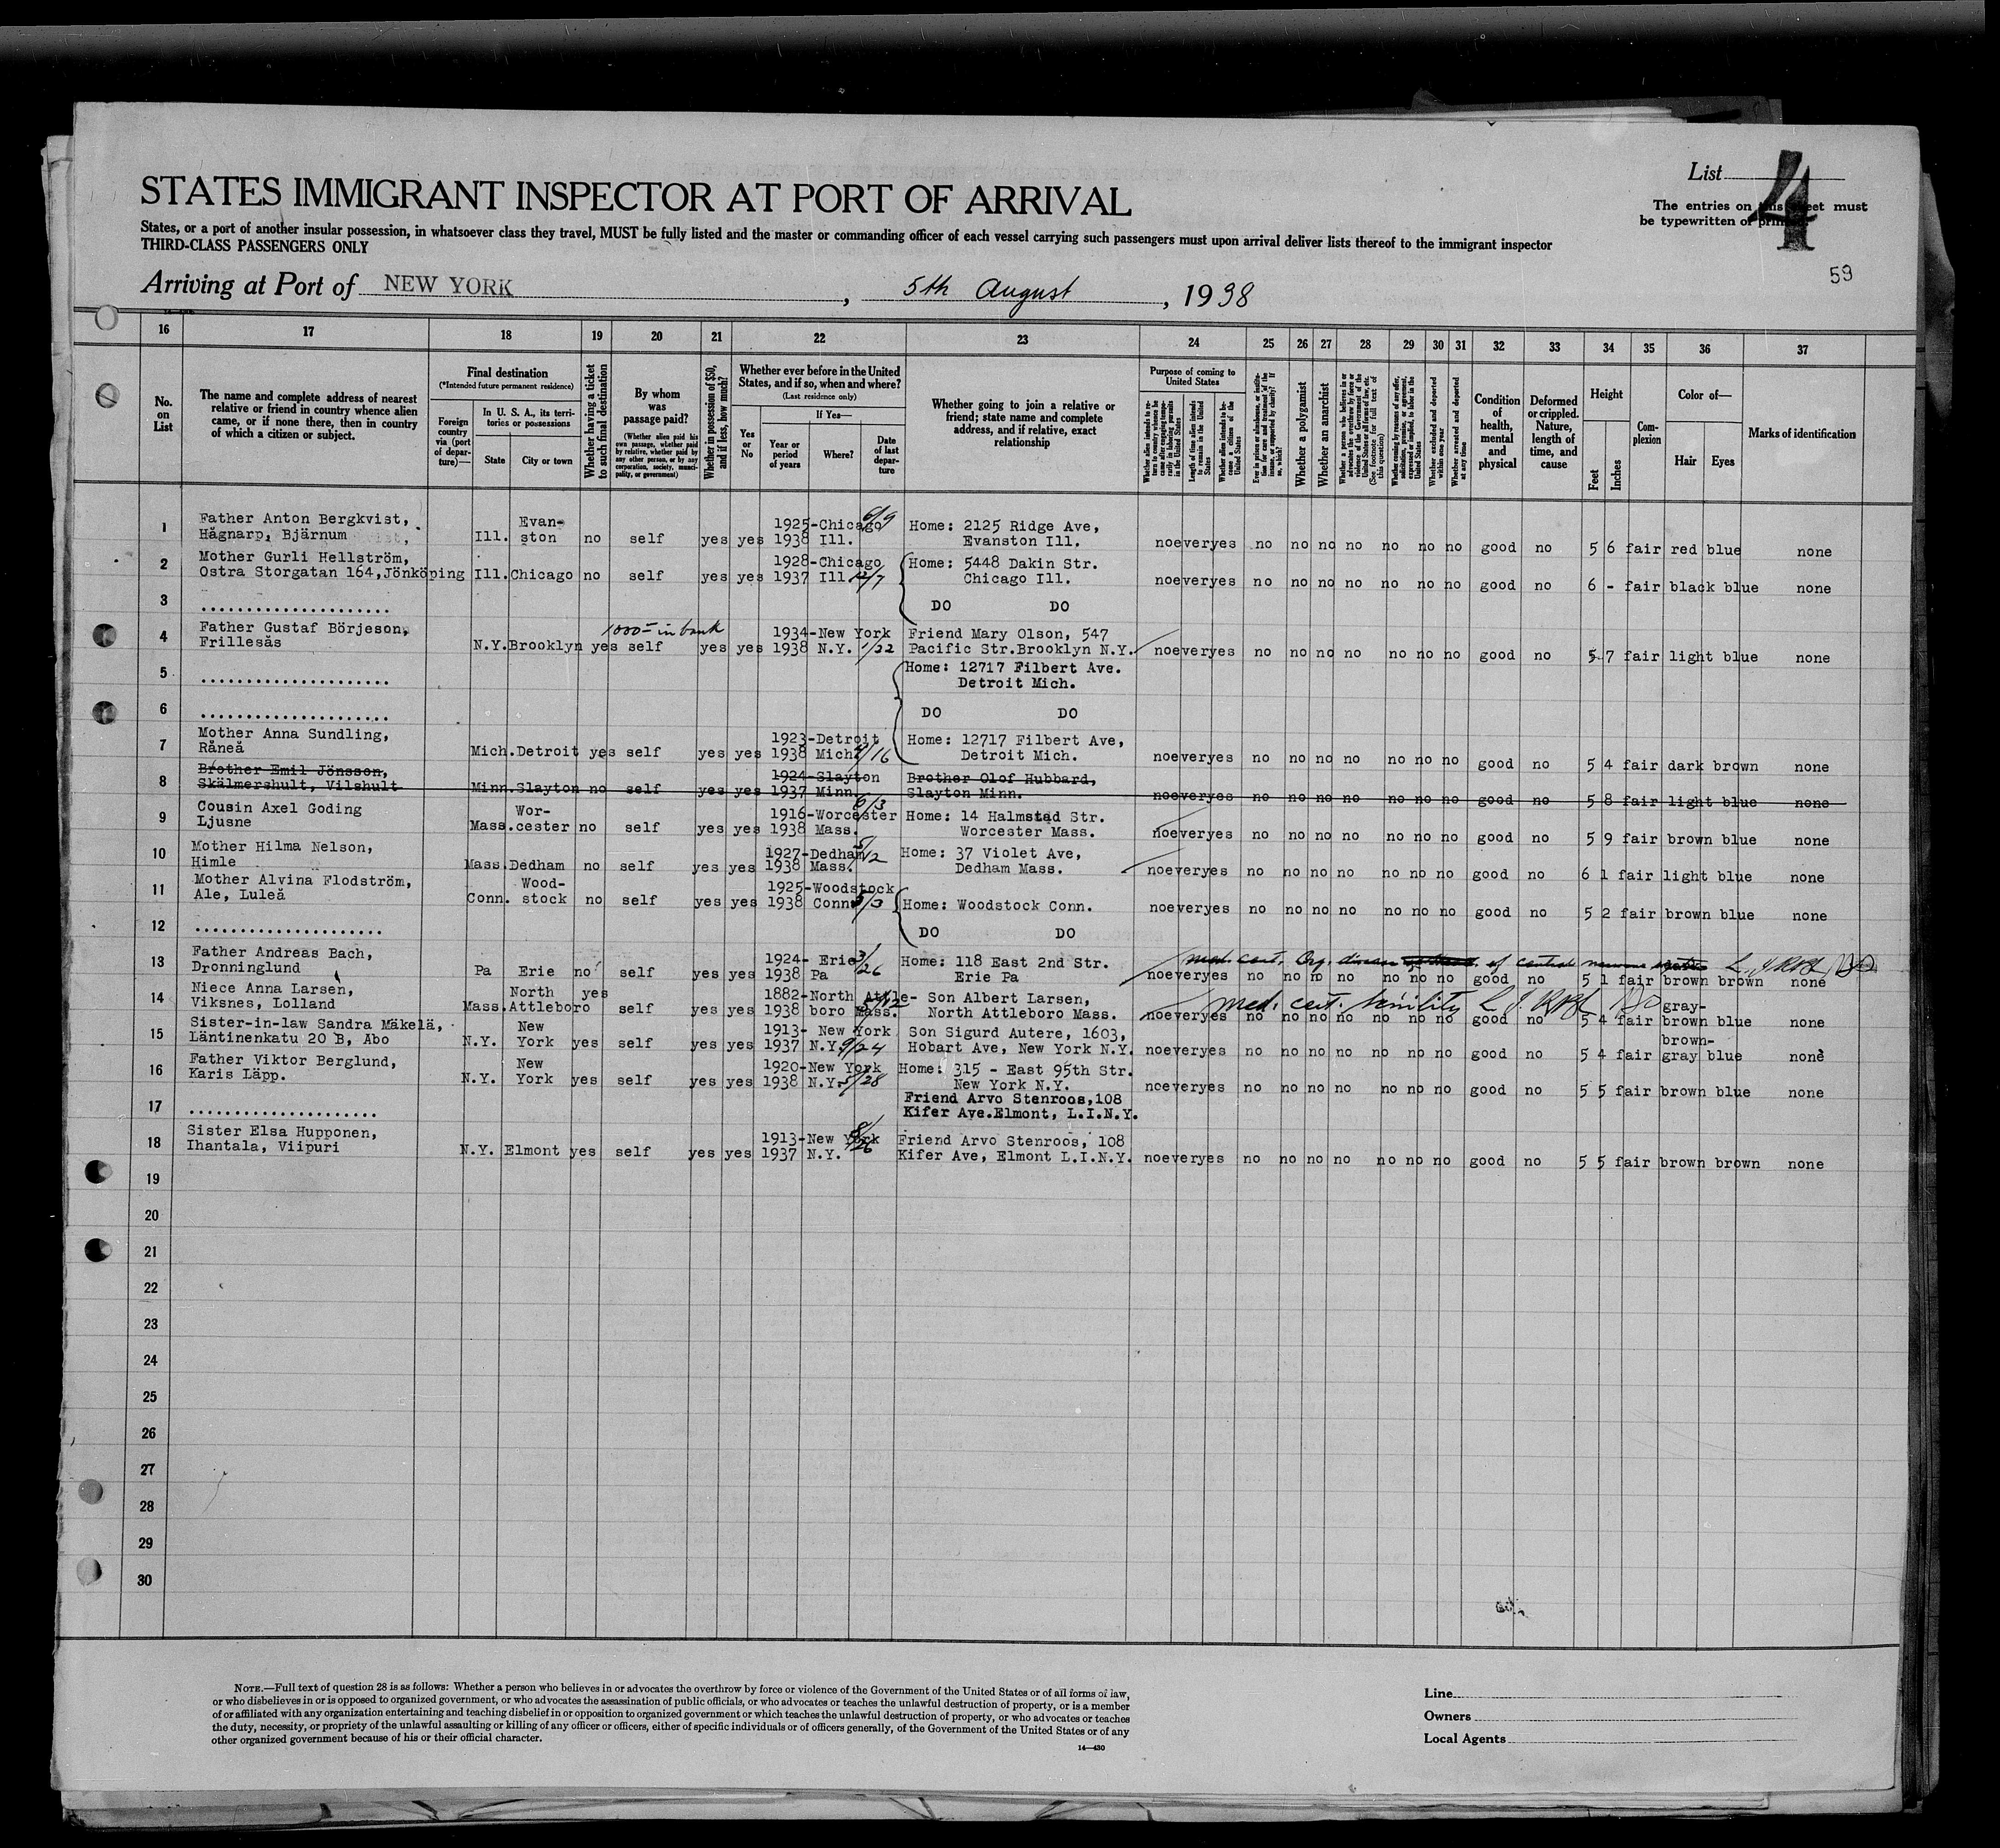 List 4
STATES IMMIGRANT INSPECTOR AT PORT OF ARRIVAL
The entries on this sheet must
be typewritten or printed
States, or a port of another insular possession, in whatsoever class they travel, MUST be fully listed and the master or commanding officer of each vessel carrying such passengers must upon arrival deliver lists thereof to the immigrant inspector
THIRD-CLASS PASSENGERS ONLY
59
Arriving at Port of NEW YORK, 5th August, 1938
16 17 18 19 20 21 22 23 24 25 26 27 28 29 30 31 32 33 34 35 36 37
No. on List
The name and complete address of nearest relative or friend in country whence alien came, or if none there, then in country of which a citizen or subject.
Final destination
(*Intended future permanent residence)
Foreign country via (port of departure)—
In U. S. A., its territories or possessions
State
City or town
Whether having a ticket to such final destination
By whom was passage paid?
(Whether alien paid his own passage, whether paid by relative, whether paid by any other person, or by any corporation, society, municipality, or government)
Whether in possession of $50, and if less, how much?
Whether ever before in the United States, and if so, when and where?
(Last residence only)
Yes or No
If Yes—
Year or period of years
Where?
Date of last departure
Whether going to join a relative or friend; state name and complete address, and if relative, exact relationship
Purpose of coming to United States
Whether alien intends to return to country whence he came after engaging temporarily in laboring pursuits in the United States
Length of time alien intends to remain in the United States
Whether alien intends to become a citizen of the United States
Ever in prison or almshouse, or institution for care and treatment of the insane, or supported by charity? If so, which?
Whether a polygamist
Whether an anarchist
Whether a person who believes in or advocates the overthrow by force or violence of the Government of the United States or all forms of law, etc. (See footnote for full text of this question)
Whether coming by reasons of any offer, solicitation, promise, or agreement, expressed or implied, to labor in the United States
Whether excluded and deported within one year
Whether arrested and deported at any time
Condition of health, mental and physical
Deformed or crippled. Nature, length of time, and cause
Height
Feet
Inches
Complexion
Color of—
Hair
Eyes
Marks of identification
1 Father Anton Bergkvist, Evan- 1925-Chicago 6/9 Home: 2125 Ridge Ave,
Hågnarp, Bjärnum Ill. ston no self yes yes 1938 Ill. Evanston Ill. no ever yes no no no no no no no good no 5 6 fair red blue none
2 Mother Gurli Hellström, 1928-Chicago Home: 5448 Dakin Str.
Ostra Storgatan 164, Jönköping Ill. Chicago no self yes yes 1937 Ill. 12/7 Chicago Ill. no ever yes no no no no no no no good no 6 - fair black blue none
3 ..................... DO DO
4 Father Gustaf Börjeson, 1000- in bank 1934-New York Friend Mary Olson, 547
Frillesås N.Y. Brooklyn yes self yes yes 1938 N.Y. 1/22 Pacific Str. Brooklyn N.Y. no ever yes no no no no no no no good no 5 7 fair light blue none
5 ..................... Home: 12717 Filbert Ave.
Detroit Mich.
6 ..................... DO DO
7 Mother Anna Sundling, 1923-Detroit Home: 12717 Filbert Ave,
Råneå Mich. Detroit yes self yes yes 1938 Mich. /16 Detroit Mich. no ever yes no no no no no no no good no 5 4 fair dark brown none
8 Brother Emil Jönsson, 1924-Slayton Brother Olof Hubbard,
Skälmershult, Vilshult Minn. Slayton no self yes yes 1937 Minn. Slayton Minn. no ever yes no no no no no no no good no 5 8 fair light blue none
9 Cousin Axel Goding Wor- 1916-Worcester 6/3 Home: 14 Halmstad Str.
Ljusne Mass. cester no self yes yes 1938 Mass. Worcester Mass. no ever yes no no no no no no no good no 5 9 fair brown blue none
10 Mother Hilma Nelson, 1927-Dedham Home: 37 Violet Ave,
Himle Mass. Dedham no self yes yes 1938 Mass. /12 Dedham Mass. no ever yes no no no no no no no good no 6 1 fair light blue none
11 Mother Alvina Flodström, Wood- 1925-Woodstock
Ale, Luleå Conn. stock no self yes yes 1938 Conn. 5/3 Home: Woodstock Conn. no ever yes no no no no no no no good no 5 2 fair brown blue none
12 ..................... DO DO
13 Father Andreas Bach, 1924- Erie 3/26 Home: 118 East 2nd Str. med cert. Org. disease of central nervous system
Dronninglund Pa Erie no self yes yes 1938 Pa Erie Pa no ever yes no no no no no no no good no 5 1 fair brown brown none
14 Niece Anna Larsen, North yes 1882-North Attle- Son Albert Larsen, med. cert. senility gray-
Viksnes, Lolland Mass. Attleboro self yes yes 1938 boro Mass. North Attleboro Mass. no ever yes no no no no no no no good no 5 4 fair brown blue none
15 Sister-in-law Sandra Mäkelä, New 1913- New York Son Sigurd Autere, 1603, brown-
Läntinenkatu 20 B, Abo N.Y. York yes self yes yes 1937 N.Y. 9/24 Hobart Ave, New York N.Y. no ever yes no no no no no no no good no 5 4 fair gray blue none
16 Father Viktor Berglund, New 1920-New York Home: 315 - East 95th Str.
Karis Läpp. N.Y. York yes self yes yes 1938 N.Y. 5/28 New York N.Y. no ever yes no no no no no no no good no 5 5 fair brown blue none
17 ..................... Friend Arvo Stenroos, 108
Kifer Ave. Elmont, L.I.N.Y.
18 Sister Elsa Hupponen, 1913-New York Friend Arvo Stenroos, 108
Ihantala, Viipuri N.Y. Elmont yes self yes yes 1937 N.Y. Kifer Ave, Elmont L.I.N.Y. no ever yes no no no no no no no good no 5 5 fair brown brown none
19
20
21
22
23
24
25
26
27
28
29
30
NOTE.—Full text of question 28 is as follows: Whether a person who believes in or advocates the overthrow by force or violence of the Government of the United States or of all forms of law,
or who disbelieves in or is opposed to organized government, or who advocates the assassination of public officials, or who advocates or teaches the unlawful destruction of property, or is a member
of or affiliated with any organization entertaining and teaching disbelief in or opposition to organized government or which teaches the unlawful destruction of property, or who advocates or teaches
the duty, necessity, or propriety of the unlawful assaulting or killing of any officer or officers, either of specific individuals or of officers generally, of the Government of the United States or of any
other organized government because of his or their official character.
14—430
Line
Owners
Local Agents